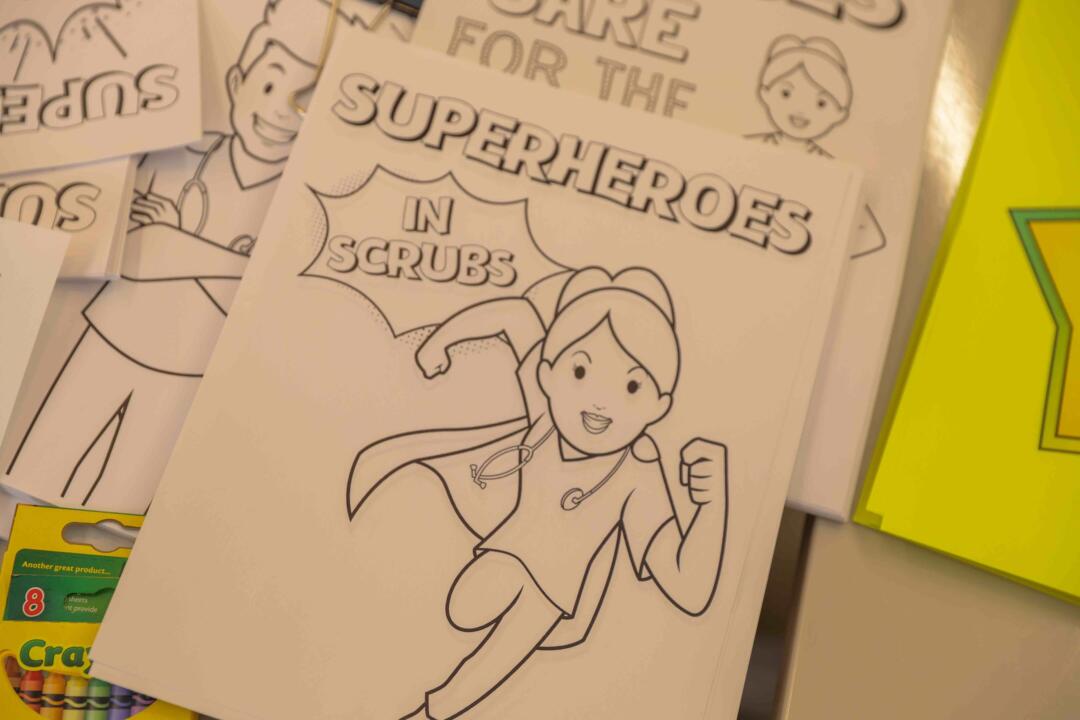 CARE
FOR THE
SUPERHEROES
IN
SCRUBS
SUPE
SU
Another great product...
8
sheets
t provide
Cra